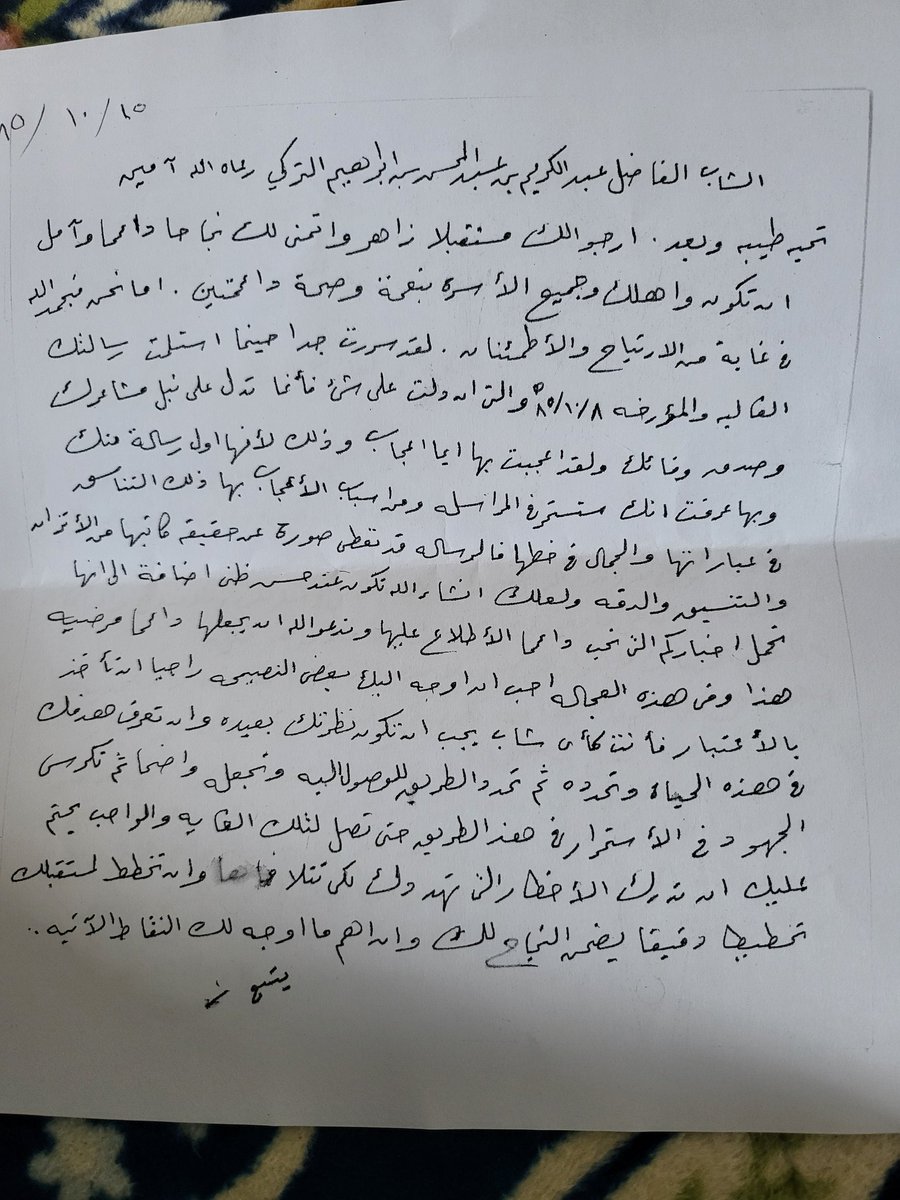 ٨٥/١٠/١٥
الشاب الفاضل عبدالكريم بن عبدالمحسن بن ابراهيم التركي رعاه الله آمين
تحيه طيبه وبعد . ارجو لك مستقبلا زاهر واتمنى لك نجاحا دائما وآمل
ان تكون واهلك وجميع الأسره بنعمة وصحة دائمتين . اما نحن فبحمد الله
في غاية من الارتياح والأطمئنان . لقد سررت جدا حينما استلمت رسالتك
الغاليه والمؤرخه ٨٥/١٠/٨ه والتي ان دلت على شئ فأنما تدل على نبل مشاعرك
وصدق وفائك ولقد اعجبت بها ايما اعجاب وذلك لأنها اول رسالة منك
وبها عرفت انك ستستمر في المراسله ومن اسباب الأعجاب بها ذلك التناسق
في عباراتها والجمال في خطها فالرساله قد تعطى صورة عن حقيقة كاتبها من الأتزان
والتنسيق والدقه ولعلك انشاء الله تكون عند حسن ظني اضافة الى انها
تحمل اخباركم التي نحب دائما الأطلاع عليها وندعو الله ان يجعلها دائما مرضيه
هذا وفي هذه العجاله احب ان اوجه اليك بعض النصيحه راجيا ان تأخذ
بالأعتبار فأنت كأى شاب يجب ان تكون نظرتك بعيده وان تعرف هدفك
في هذه الحياة وتحدده ثم تحدد الطريق للوصول اليه وتجعله واضحا ثم تكرس
الجهود في الأستمرار في هذ الطريق حتى تصل لتلك الغايه والواجب يحتم
عليك ان تدرك الأخطار التي تهددك لكي تتلافاها وان تخطط لمستقبلك
تخطيطا دقيقا يضمن النجاح لك وان اهم ما اوجه لك النقاط الآتيه ..
يتبع